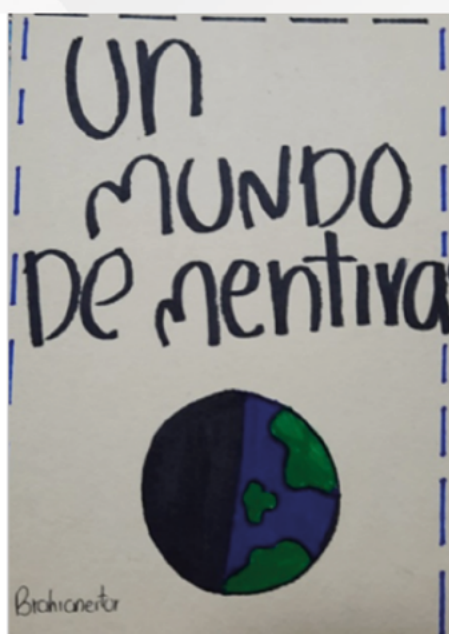 Un
MUNDO
De mentira
Brahianeitor